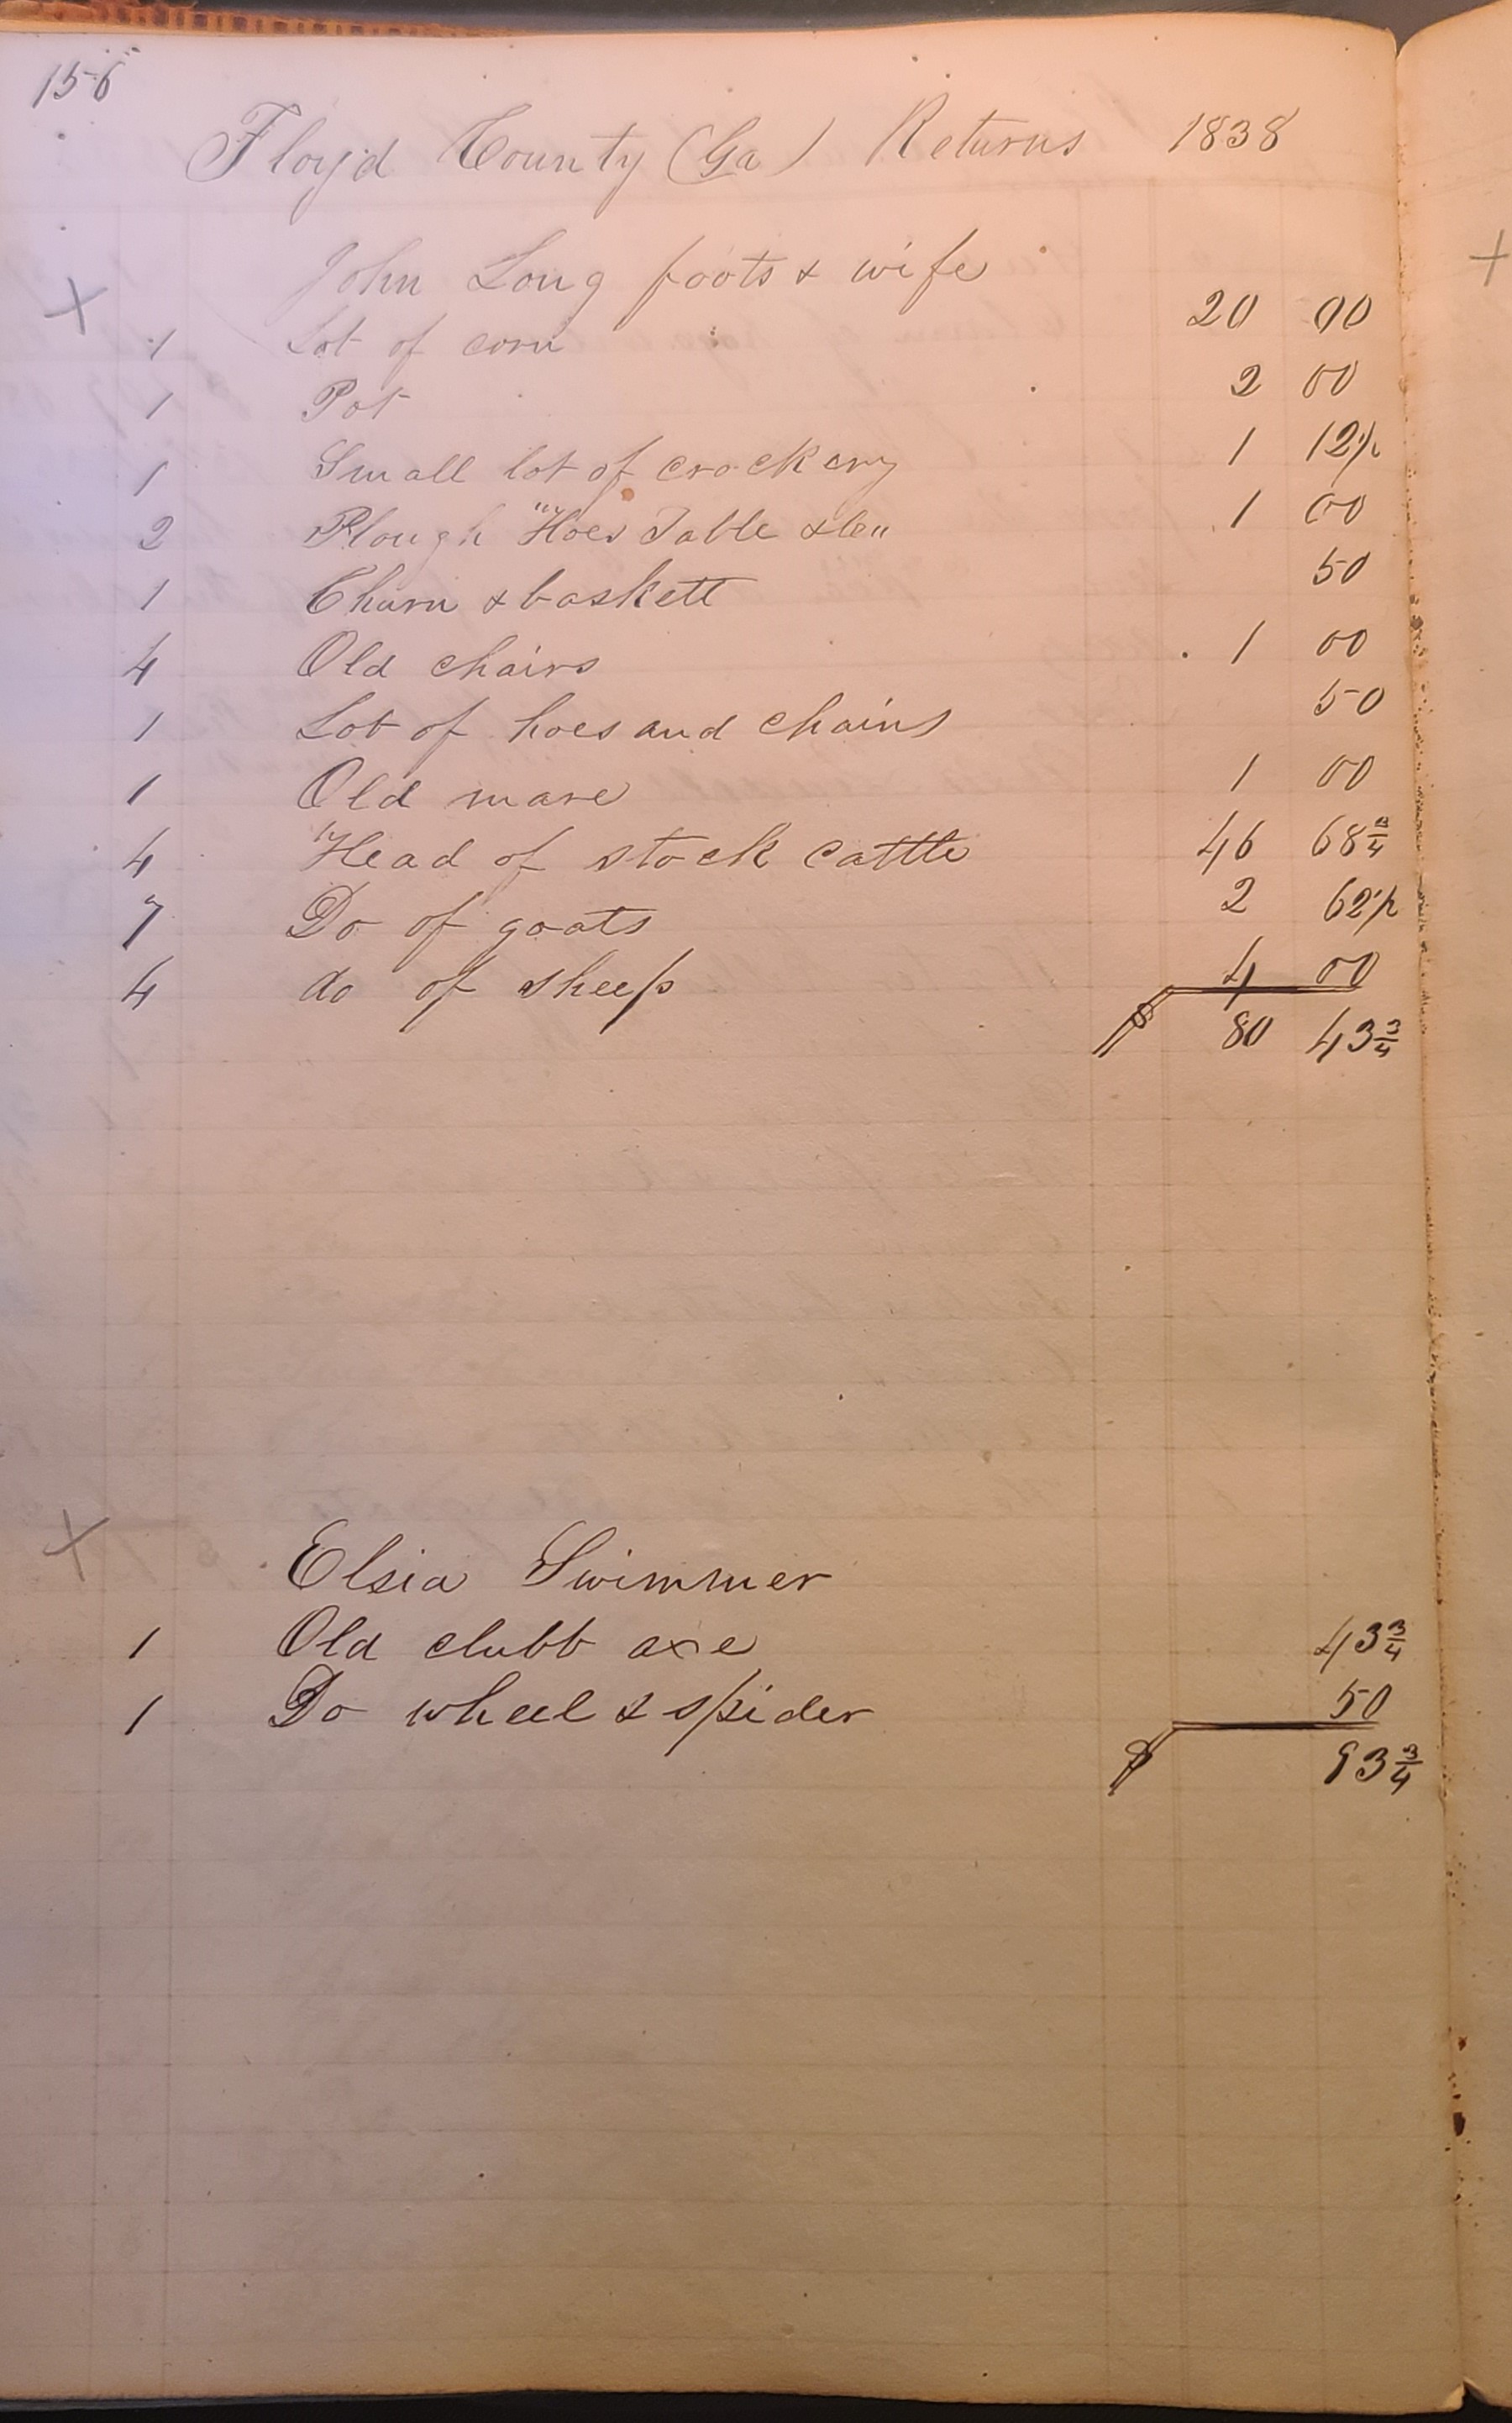 156
Floyd County (Ga) Returns 1838
+ John Long foots & wife +
1 Lot of corn 20 00
1 Pot 2 00
1 Small lot of crockery 1 12½
2 Plough "Hoes Table &c" 1 00
1 Churn & baskett 50
4 Old chairs 1 00
1 Lot of hoes and chains 50
1 Old mare 1 00
4 Head of stock cattle 46 68¾
7 Do of goats 2 62½
4 do of sheep 4 00
$ 80 43¾
+ Elsia Swimmer
1 Old clubb axe 43¾
1 Do wheel & spider 50
$ 93¾